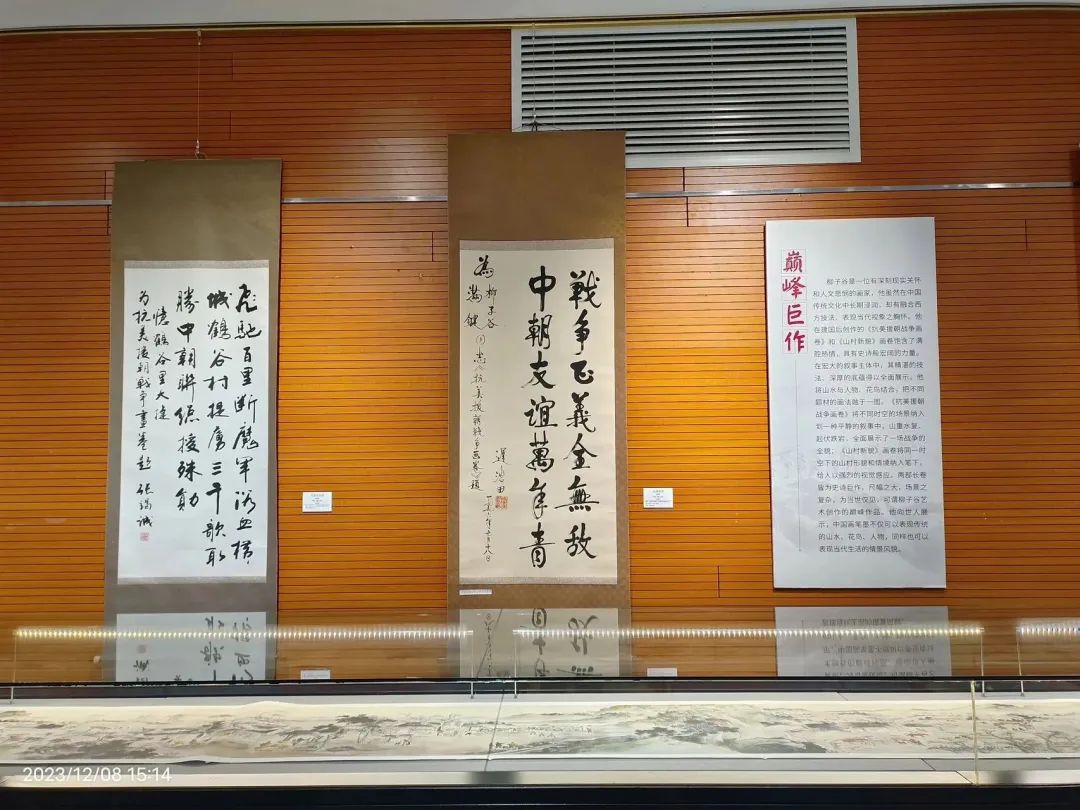 彪驰百里断魔军浴血横
城鹤谷村捉虏三千歌
胜中朝联
忆鹤谷里大捷
为抗美援朝战争画卷题 张
战争正义全無敌
中朝友谊萬年青
為柳子谷
同志《抗美援朝战争画卷》题
巅峰巨作
柳子谷是一位有深刻现实关怀
和人文悲悯的画家，他虽然在中国
传统文化中长期浸润，却有融合西
方技法、表现当代现象之胸怀。他
在建国后创作的《抗美援朝战争画
卷》和《山村新貌》画卷饱含了满
腔热情，具有史诗般宏阔的力量。
在宏大的叙事主体中，其精湛的技
法、深厚的底蕴得以全面展示。他
将山水与人物、花鸟结合，把不同
题材的画法融于一图。《抗美援朝
战争画卷》将不同时空的场景纳入
到一种平静的叙事中，山重水复、
起伏跌宕，全面展示了一场战争的
全貌；《山村新貌》画卷将同一时
空下的山村形貌和情境纳入笔下，
给人以强烈的视觉感应。两部长卷
皆为史诗巨作，尺幅之大，场景之
复杂，为当世仅见，可谓柳子谷艺
术创作的巅峰作品。他向世人展
示，中国画笔墨不仅可以表现传统
的山水、花鸟、人物，同样也可以
表现当代生活的情景风貌。
2023/12/08 15:14